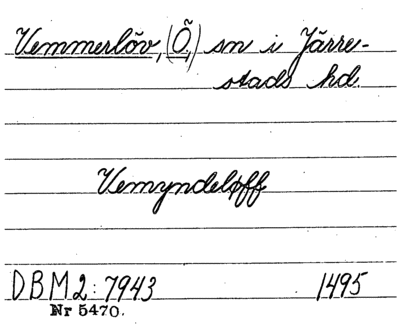 Vemmerlöv, (Ö.) sn i Järre-
stads hd.
Vemyndeløff
DBM 2: 7943 1495
Nr 5470.